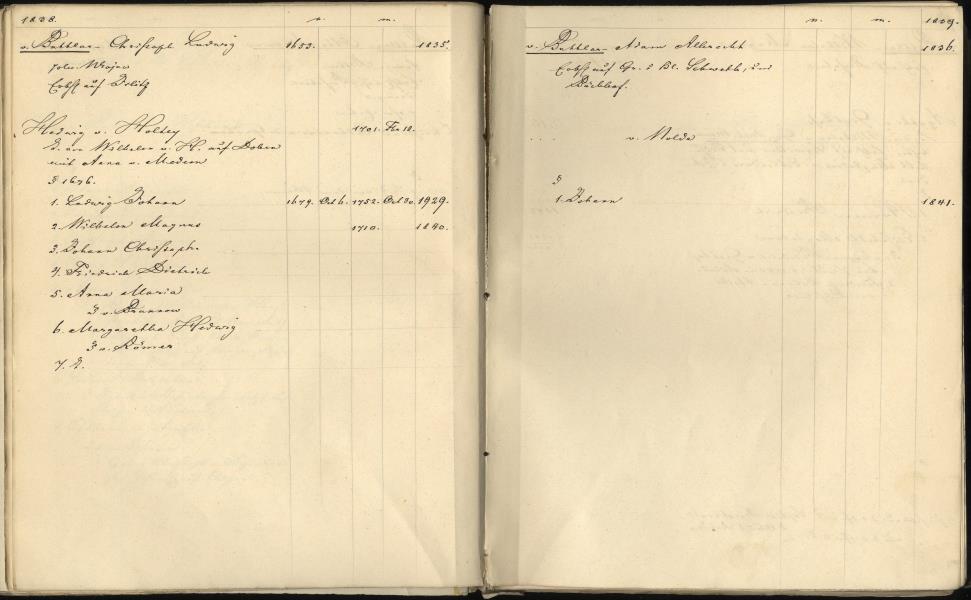 1838. n. m.
v. Buttlar- Christoph Ludwig 1653. 1835.
poln. Major
Erbh. auf Zelitz
Hedwig v. Holtey 1701. Fbr 18.
T. von Wilhelm v. H. auf Doben
mit Anna v. Medem
1676.
1. Ludwig Johann 1679. Oct 6. 1752. Oct 30. 1929.
2. Wilhelm Magnus 1710. 1840.
3. Johann Christoph.
4. Friedrich Dietrich
5. Anna Maria
v. Brunnow
6. Margaretha Hedwig
v. Römer
7. T.
n. m. 1839.
v. Buttlar- Adam Albrecht 1836.
Erbh. auf Gr. & Kl. Schwalh, und
v. Molda
1. Johann 1841.